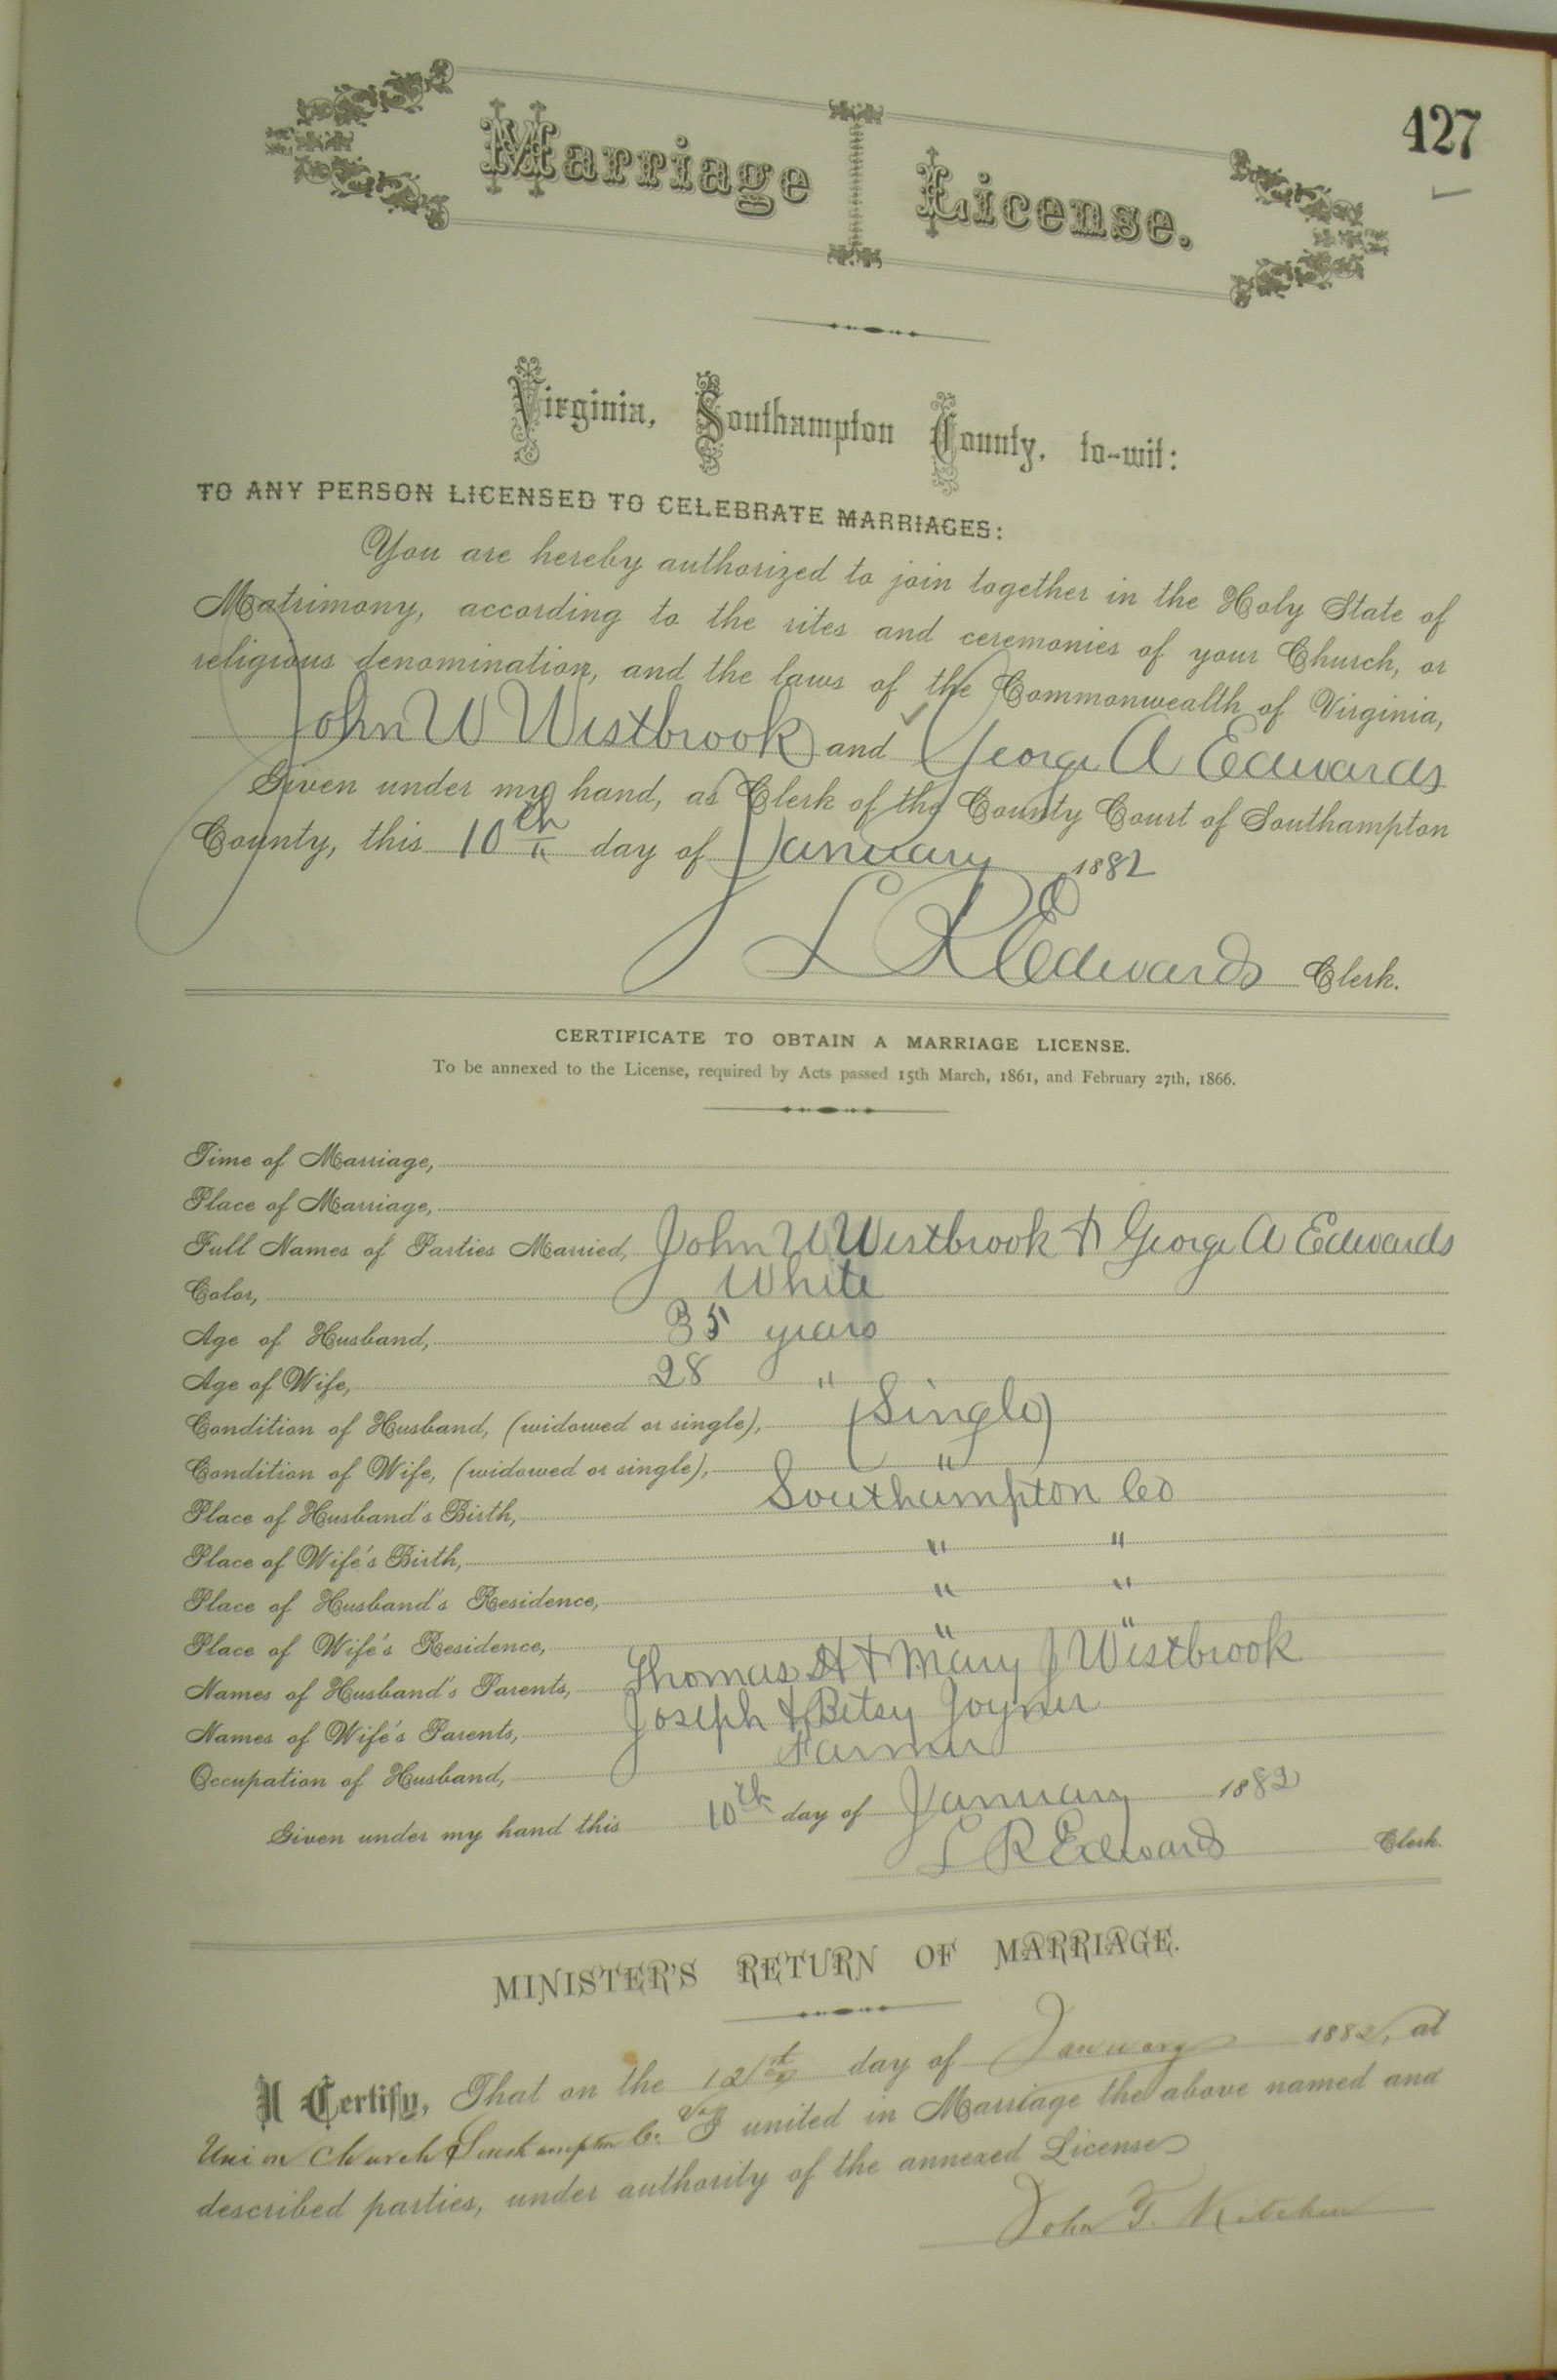 427
Marriage License.
Virginia, Southampton County, to-wit:
TO ANY PERSON LICENSED TO CELEBRATE MARRIAGES:
You are hereby authorized to join together in the Holy State of
Matrimony, according to the rites and ceremonies of your Church, or
religious denomination, and the laws of the Commonwealth of Virginia,
John W Westbrook and George A Edwards
Given under my hand, as Clerk of the County Court of Southampton
County, this 10th day of January 1882
L R Edwards Clerk.
CERTIFICATE TO OBTAIN A MARRIAGE LICENSE.
To be annexed to the License, required by Acts passed 15th March, 1861, and February 27th, 1866.
Time of Marriage,
Place of Marriage,
Full Names of Parties Married, John W Westbrook & George A Edwards
Color, White
Age of Husband, 35 years
Age of Wife, 28 "
Condition of Husband, (widowed or single), (Single)
Condition of Wife, (widowed or single), "
Place of Husband's Birth, Southampton Co
Place of Wife's Birth, " "
Place of Husband's Residence, " "
Place of Wife's Residence, " "
Names of Husband's Parents, Thomas H & Mary J Westbrook
Names of Wife's Parents, Joseph & Betsy Joyner
Occupation of Husband, Farmer
Given under my hand this 10th day of January 1882
L R Edwards Clerk.
MINISTER'S RETURN OF MARRIAGE.
I Certify, That on the 12 day of January 1882, at
Union Church Southampton Co. Va I united in Marriage the above named and
described parties, under authority of the annexed License
John T. Kitchen